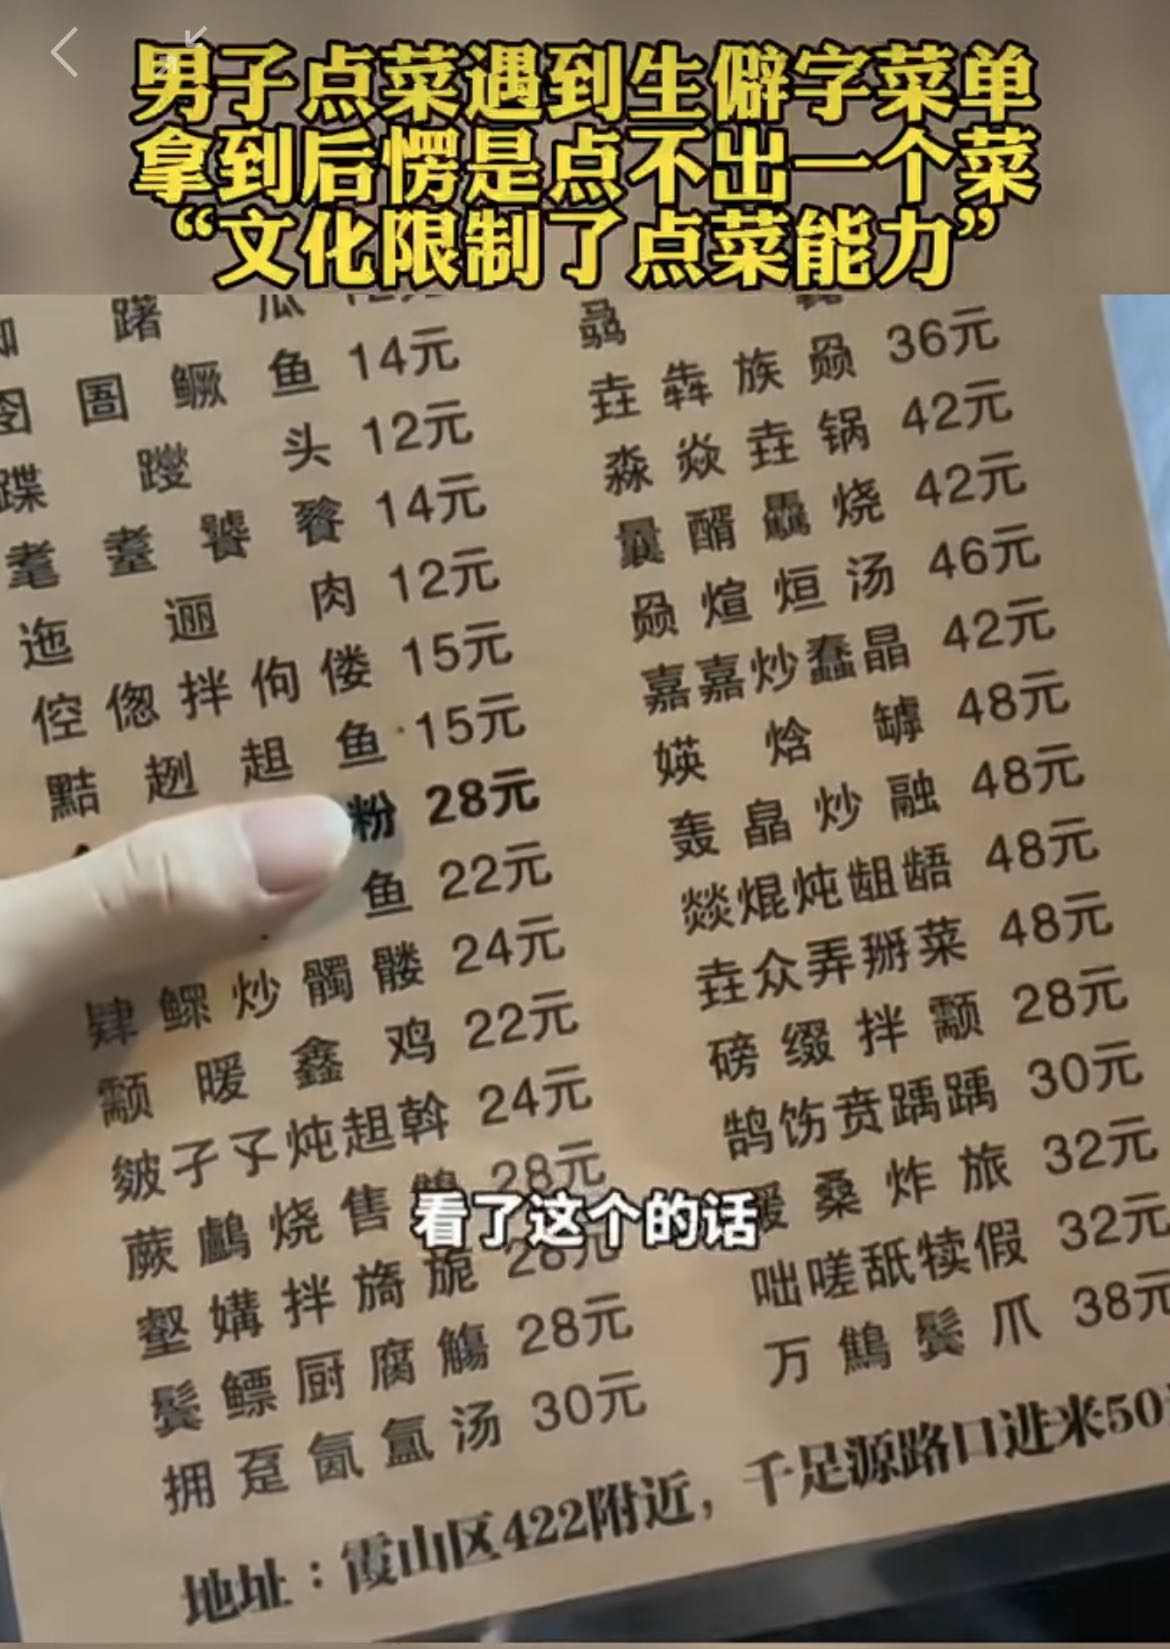 男子点菜遇到生僻字菜单
拿到后愣是点不出一个菜
“文化限制了点菜能力”
瓜
圄鳜鱼 14元
头 12元
耄耋饕餮 14元
迤逦肉 12元
倥偬拌佝偻 15元
黠趔趄鱼 15元
粉 28元
鱼 22元
肆鳏炒髑髅 24元
颥暖鑫鸡 22元
皴孑孓炖趄斡 24元
蕨鸕烧售 28元
壑媾拌旖旎 28元
鬓鳔厨腐觞 28元
拥趸氤氲汤 30元
骉
垚犇族赑 36元
淼焱垚锅 42元
曩醑骉烧 42元
赑煊烜汤 46元
嘉嘉炒蠢晶 42元
媖焓罅 48元
轰皛炒融 48元
燚焜炖龃龉 48元
垚众弄掰菜 48元
磅缀拌颥 28元
鹄饬贲踽踽 30元
桑炸旅 32元
咄嗟舐犊假 32元
万鷍鬓爪 38元
看了这个的话
地址：霞山区422附近，千足源路口进米50